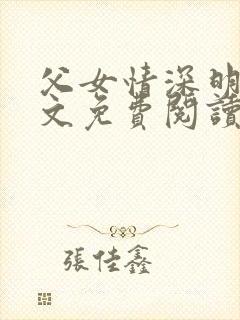 父女情深明
文免費閱讀
張佳鑫